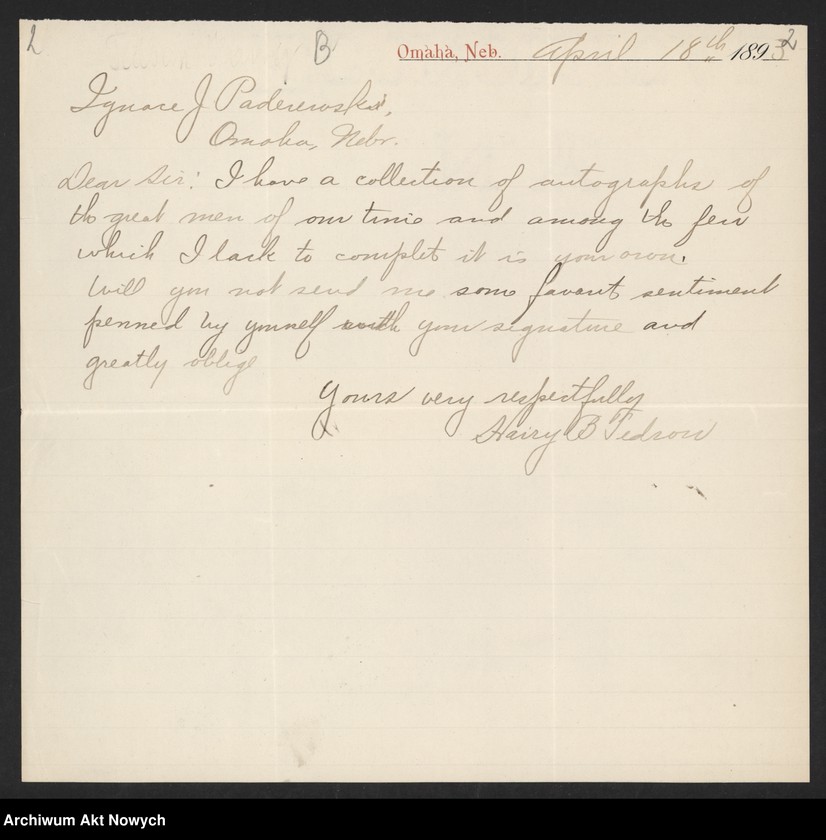 2 B Omaha, Neb. April 18th 1893 2
Ignace J Paderewski,
Omaha, Nebr.
Dear Sir: I have a collection of autographs of
the great men of our time and among the few
which I lack to complet it is your own.
Will you not send me some favorit sentiment
penned by yourself with your signature and
greatly oblige
Yours very respectfully
Harry B Tedrow
Archiwum Akt Nowych